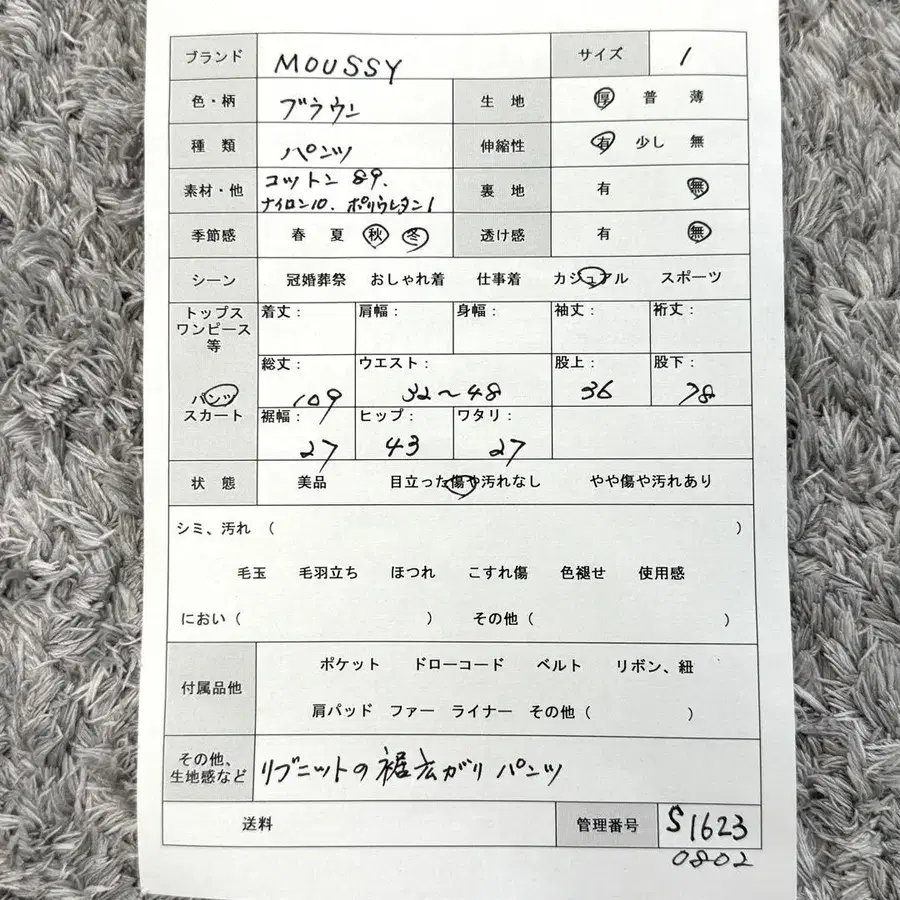 ブランド MOUSSY サイズ 1
色・柄 ブラウン 生地 厚 普 薄
種類 パンツ 伸縮性 有 少し 無
素材・他 コットン 89. ナイロン10. ポリウレタン1 裏地 有 無
季節感 春 夏 秋 冬 透け感 有 無
シーン 冠婚葬祭 おしゃれ着 仕事着 カジュアル スポーツ
トップス
ワンピース
等
着丈: 肩幅: 身幅: 袖丈: 裄丈:
パンツ
スカート
総丈: ウエスト: 股上: 股下:
109 32~48 36 78
裾幅: ヒップ: ワタリ:
27 43 27
状態 美品 目立った傷や汚れなし やや傷や汚れあり
シミ、汚れ ( )
毛玉 毛羽立ち ほつれ こすれ傷 色褪せ 使用感
におい ( ) その他 ( )
付属品他
ポケット ドローコード ベルト リボン、紐
肩パッド ファー ライナー その他 ( )
その他、
生地感など
リブニットの裾広がりパンツ
送料 管理番号 S1623
0802